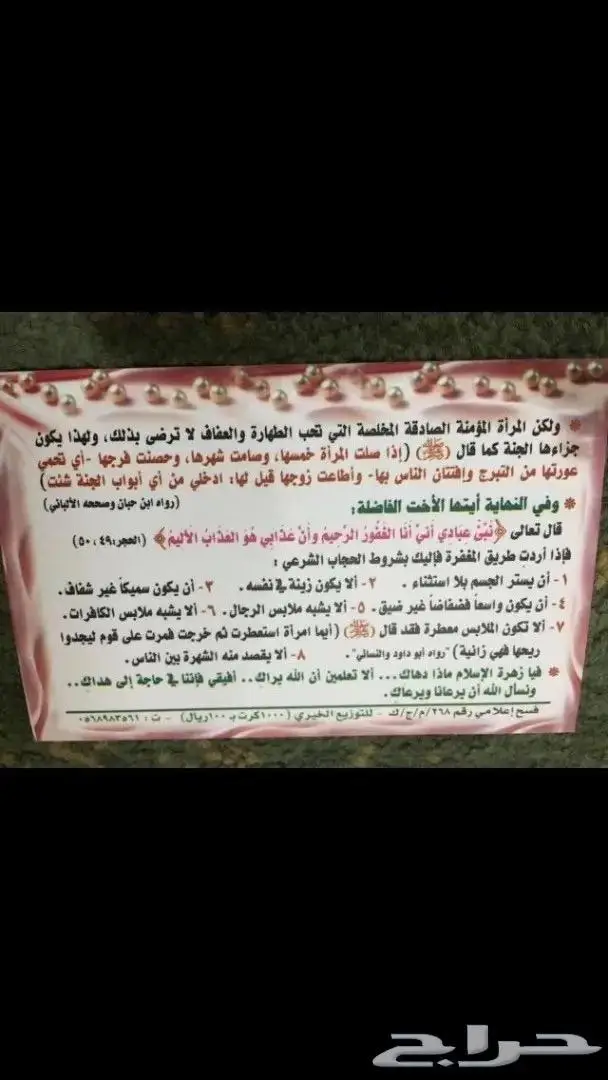 * ولكن المرأة المؤمنة الصادقة المخلصة التي تحب الطهارة والعفاف لا ترضى بذلك، ولهذا يكون
جزاءها الجنة كما قال (ﷺ) (إذا صلت المرأة خمسها، وصامت شهرها، وحصنت فرجها -أي تحمي
عورتها من التبرج وإفتتان الناس بها- وأطاعت زوجها قيل لها: ادخلي من أي أبواب الجنة شئت)
(رواه ابن حبان وصححه الألباني)
* وفي النهاية أيتها الأخت الفاضلة:
قال تعالى ﴿نَبِّئْ عِبَادِي أَنِّي أَنَا الْغَفُورُ الرَّحِيمُ وَأَنَّ عَذَابِي هُوَ الْعَذَابُ الْأَلِيمُ﴾ (الحجر:٤٩، ٥٠)
فإذا أردت طريق المغفرة فإليك بشروط الحجاب الشرعي:
١- أن يستر الجسم بلا استثناء. ٢- ألا يكون زينة في نفسه. ٣- أن يكون سميكاً غير شفاف.
٤- أن يكون واسعاً فضفاضاً غير ضيق. ٥- ألا يشبه ملابس الرجال. ٦- ألا يشبه ملابس الكافرات.
٧- ألا تكون الملابس معطرة فقد قال (ﷺ) (أيما امرأة استعطرت ثم خرجت فمرت على قوم ليجدوا
ريحها فهي زانية) "رواه أبو داود والنسائي". ٨- ألا يقصد منه الشهرة بين الناس.
* فيا زهرة الإسلام ماذا دهاك... ألا تعلمين أن الله يراك.. أفيقي فإننا في حاجة إلى هداك..
ونسأل الله أن يرعانا ويرعاك.
فسح إعلامي رقم ٢٦٨/م/ج/ك - للتوزيع الخيري (١٠٠٠كرت بـ ١٠٠ريال) - ت: ٠٥٦٨٩٨٣٥٦١
حراج